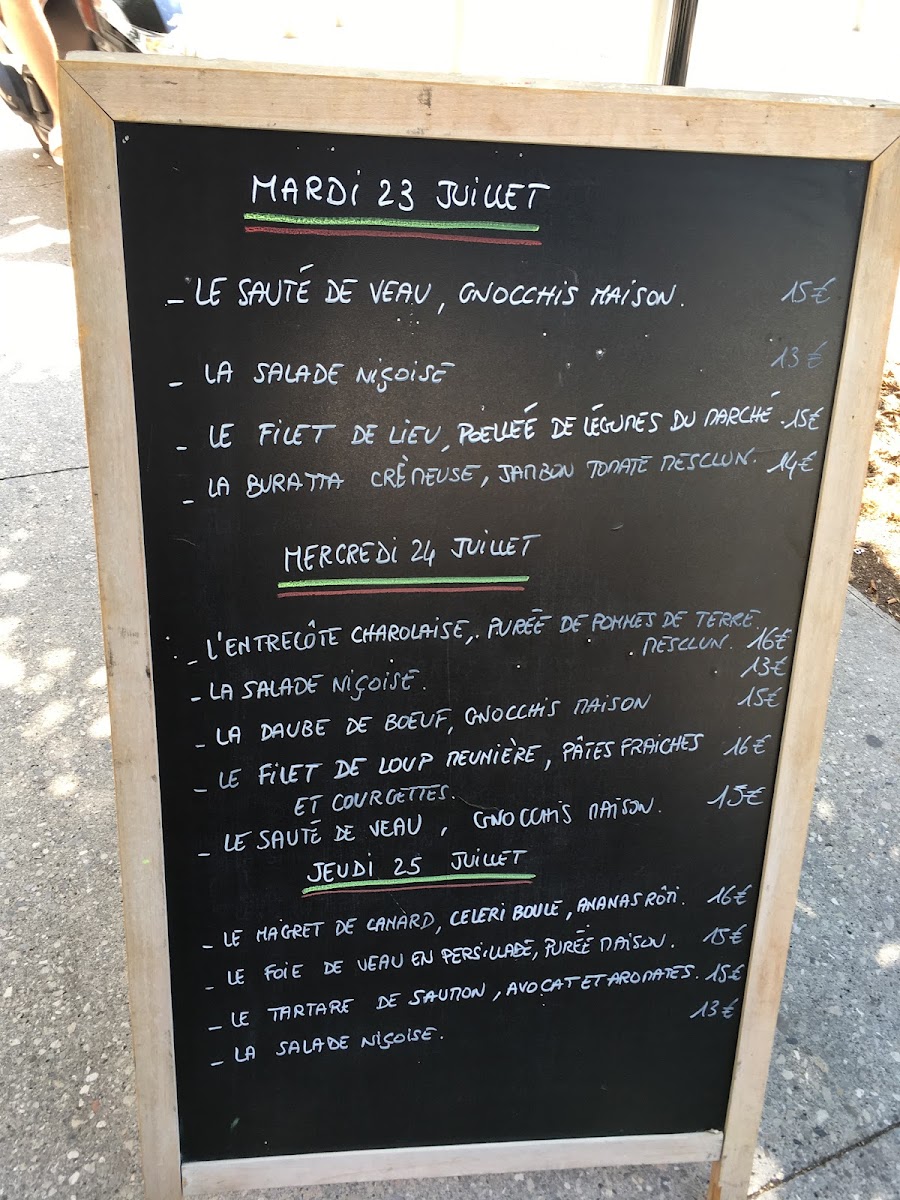 MARDI 23 JUILLET
- LE SAUTÉ DE VEAU, GNOCCHIS MAISON. 15€
- LA SALADE NIÇOISE 13€
- LE FILET DE LIEU, POELLEÉ DE LÉGUMES DU MARCHÉ. 15€
- LA BURATTA CRÈMEUSE, JAMBON TOMATE MESCLUN. 14€
MERCREDI 24 JUILLET
- L'ENTRECÔTE CHAROLAISE, PURÉE DE POMMES DE TERRE.
MESCLUN. 16€
- LA SALADE NIÇOISE. 13€
- LA DAUBE DE BOEUF, GNOCCHIS MAISON 15€
- LE FILET DE LOUP MEUNIÈRE, PÂTES FRAICHES 16€
ET COURGETTES.
- LE SAUTÉ DE VEAU, GNOCCHIS MAISON. 15€
JEUDI 25 JUILLET
- LE MAGRET DE CANARD, CELERI BOULE, ANANAS RÔTI. 16€
- LE FOIE DE VEAU EN PERSILLADE, PURÉE MAISON. 15€
- LE TARTARE DE SAUMON, AVOCAT ET AROMATES. 15€
- LA SALADE NIÇOISE. 13€